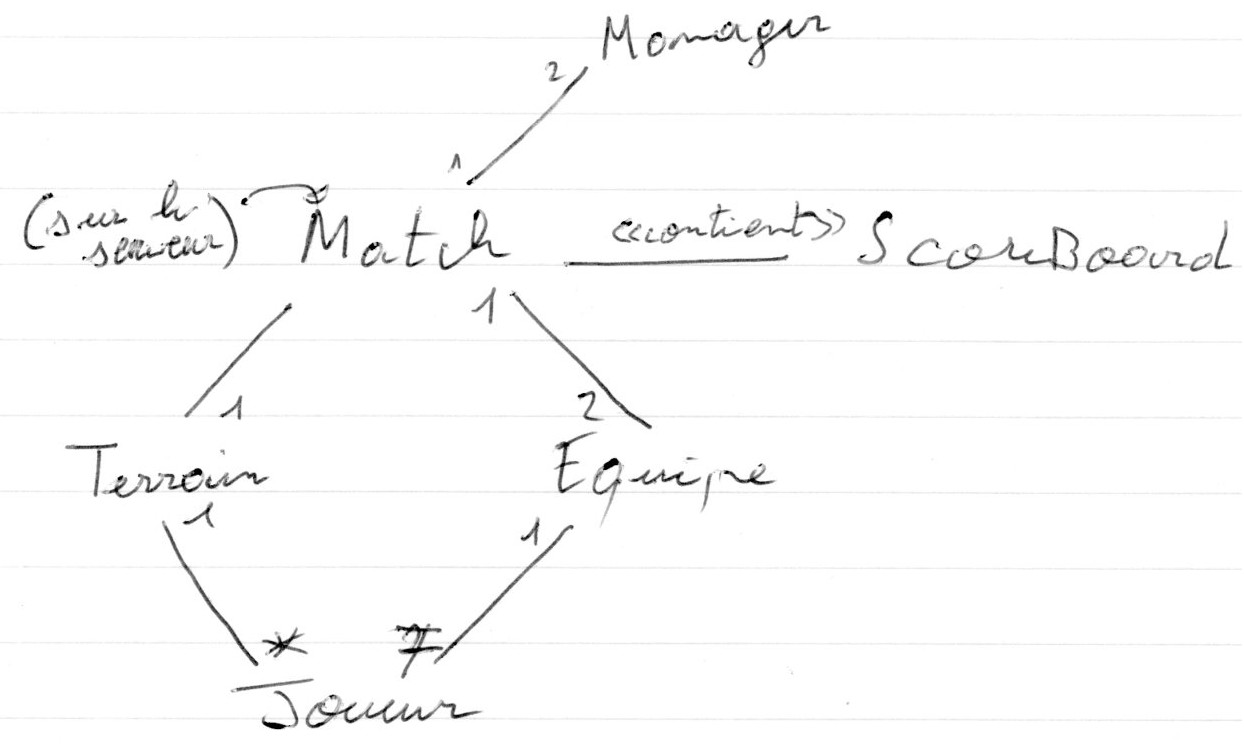 Manager
2
1
(sur le
serveur)
Match
<<contient>>
ScoreBoard
1
1
2
Terrain
Equipe
1
1
*
7
Joueur